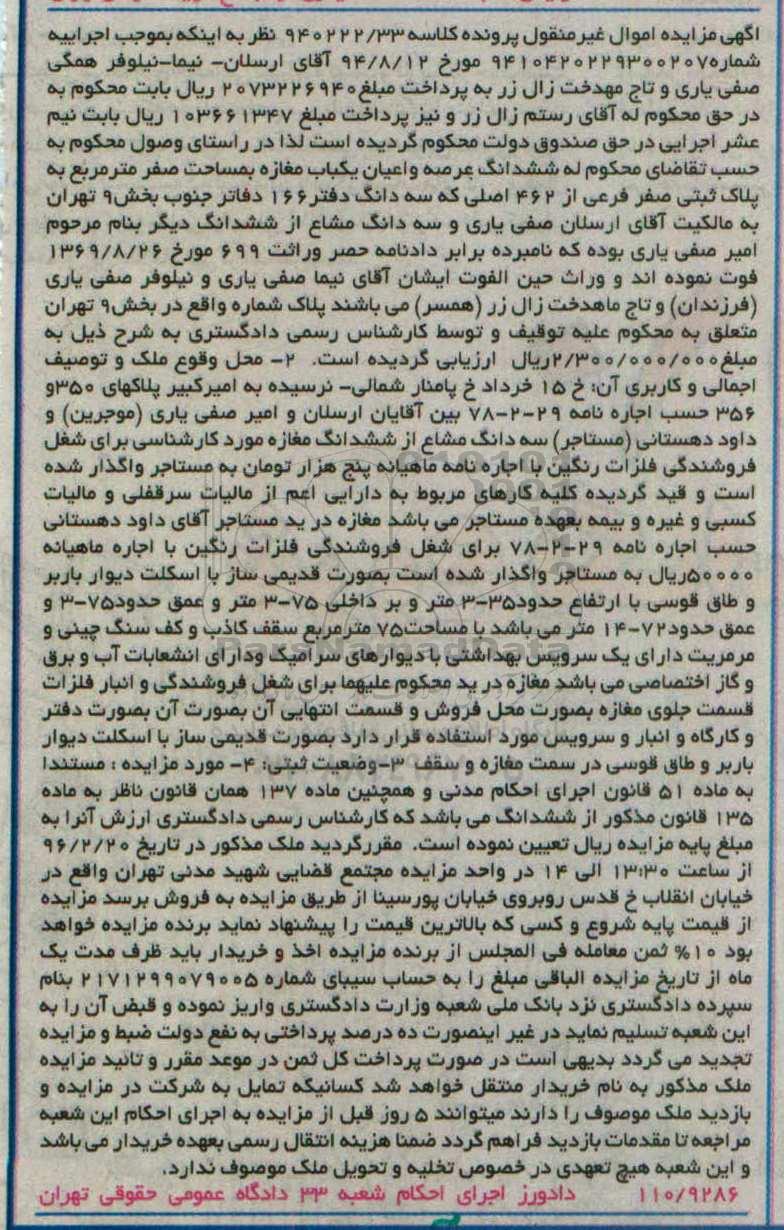 اگهی مزایده اموال غیرمنقول پرونده کلاسه ۹۴۰۲۲۲/۳۳ نظر به اینکه بموجب اجراییه
شماره۹۴۱۰۴۲۰۲۲۹۳۰۰۲۰۷ مورخ ۹۴/۸/۱۲ آقای ارسلان- نیما-نیلوفر همگی
صفی یاری و تاج مهدخت زال زر به پرداخت مبلغ۲۰۷۳۲۲۶۹۴۰ ریال بابت محکوم به
در حق محکوم له آقای رستم زال زر و نیز پرداخت مبلغ ۱۰۳۶۶۱۳۴۷ ریال بابت نیم
عشر اجرایی در حق صندوق دولت محکوم گردیده است لذا در راستای وصول محکوم به
حسب تقاضای محکوم له ششدانگ عرصه واعیان یکباب مغازه بمساحت صفر مترمربع به
پلاک ثبتی صفر فرعی از ۴۶۲ اصلی که سه دانگ دفتر۱۶۶ دفاتر جنوب بخش۹ تهران
به مالکیت آقای ارسلان صفی یاری و سه دانگ مشاع از ششدانگ دیگر بنام مرحوم
امیر صفی یاری بوده که نامبرده برابر دادنامه حصر وراثت ۶۹۹ مورخ ۱۳۶۹/۸/۲۶
فوت نموده اند و وراث حین الفوت ایشان آقای نیما صفی یاری و نیلوفر صفی یاری
(فرزندان) و تاج ماهدخت زال زر (همسر) می باشند پلاک شماره واقع در بخش۹ تهران
متعلق به محکوم علیه توقیف و توسط کارشناس رسمی دادگستری به شرح ذیل به
مبلغ۲/۳۰۰/۰۰۰/۰۰۰ریال ارزیابی گردیده است. ۲- محل وقوع ملک و توصیف
اجمالی و کاربری آن: خ ۱۵ خرداد خ پامنار شمالی- نرسیده به امیرکبیر پلاکهای ۳۵۰و
۳۵۶ حسب اجاره نامه ۲۹-۲-۷۸ بین آقایان ارسلان و امیر صفی یاری (موجرین) و
داود دهستانی (مستاجر) سه دانگ مشاع از ششدانگ مغازه مورد کارشناسی برای شغل
فروشندگی فلزات رنگین با اجاره نامه ماهیانه پنج هزار تومان به مستاجر واگذار شده
است و قید گردیده کلیه کارهای مربوط به دارایی اعم از مالیات سرقفلی و مالیات
کسبی و غیره و بیمه بعهده مستاجر می باشد مغازه در ید مستاجر آقای داود دهستانی
حسب اجاره نامه ۲۹-۲-۷۸ برای شغل فروشندگی فلزات رنگین با اجاره ماهیانه
۵۰۰۰۰ریال به مستاجر واگذار شده است بصورت قدیمی ساز با اسکلت دیوار باربر
و طاق قوسی با ارتفاع حدود۳۵-۳ متر و بر داخلی ۷۵-۳ متر و عمق حدود۷۵-۳ و
عمق حدود۷۲-۱۴ متر می باشد با مساحت۷۵ مترمربع سقف کاذب و کف سنگ چینی و
مرمریت دارای یک سرویس بهداشتی با دیوارهای سرامیک ودارای انشعابات آب و برق
و گاز اختصاصی می باشد مغازه در ید محکوم علیهما برای شغل فروشندگی و انبار فلزات
قسمت جلوی مغازه بصورت محل فروش و قسمت انتهایی آن بصورت آن بصورت دفتر
و کارگاه و انبار و سرویس مورد استفاده قرار دارد بصورت قدیمی ساز با اسکلت دیوار
باربر و طاق قوسی در سمت مغازه و سقف ۳-وضعیت ثبتی: ۴- مورد مزایده : مستندا
به ماده ۵۱ قانون اجرای احکام مدنی و همچنین ماده ۱۳۷ همان قانون ناظر به ماده
۱۳۵ قانون مذکور از ششدانگ می باشد که کارشناس رسمی دادگستری ارزش آنرا به
مبلغ پایه مزایده ریال تعیین نموده است. مقررگردید ملک مذکور در تاریخ ۹۶/۲/۲۰
از ساعت ۱۳:۳۰ الی ۱۴ در واحد مزایده مجتمع قضایی شهید مدنی تهران واقع در
خیابان انقلاب خ قدس روبروی خیابان پورسینا از طریق مزایده به فروش برسد مزایده
از قیمت پایه شروع و کسی که بالاترین قیمت را پیشنهاد نماید برنده مزایده خواهد
بود ۱۰% ثمن معامله فی المجلس از برنده مزایده اخذ و خریدار باید ظرف مدت یک
ماه از تاریخ مزایده الباقی مبلغ را به حساب سیبای شماره ۲۱۷۱۲۹۹۰۷۹۰۰۵ بنام
سپرده دادگستری نزد بانک ملی شعبه وزارت دادگستری واریز نموده و قبض آن را به
این شعبه تسلیم نماید در غیر اینصورت ده درصد پرداختی به نفع دولت ضبط و مزایده
تجدید می گردد بدیهی است در صورت پرداخت کل ثمن در موعد مقرر و تائید مزایده
ملک مذکور به نام خریدار منتقل خواهد شد کسانیکه تمایل به شرکت در مزایده و
بازدید ملک موصوف را دارند میتوانند ۵ روز قبل از مزایده به اجرای احکام این شعبه
مراجعه تا مقدمات بازدید فراهم گردد ضمنا هزینه انتقال رسمی بعهده خریدار می باشد
و این شعبه هیچ تعهدی در خصوص تخلیه و تحویل ملک موصوف ندارد.
۱۱۰/۹۲۸۶ دادورز اجرای احکام شعبه ۳۳ دادگاه عمومی حقوقی تهران